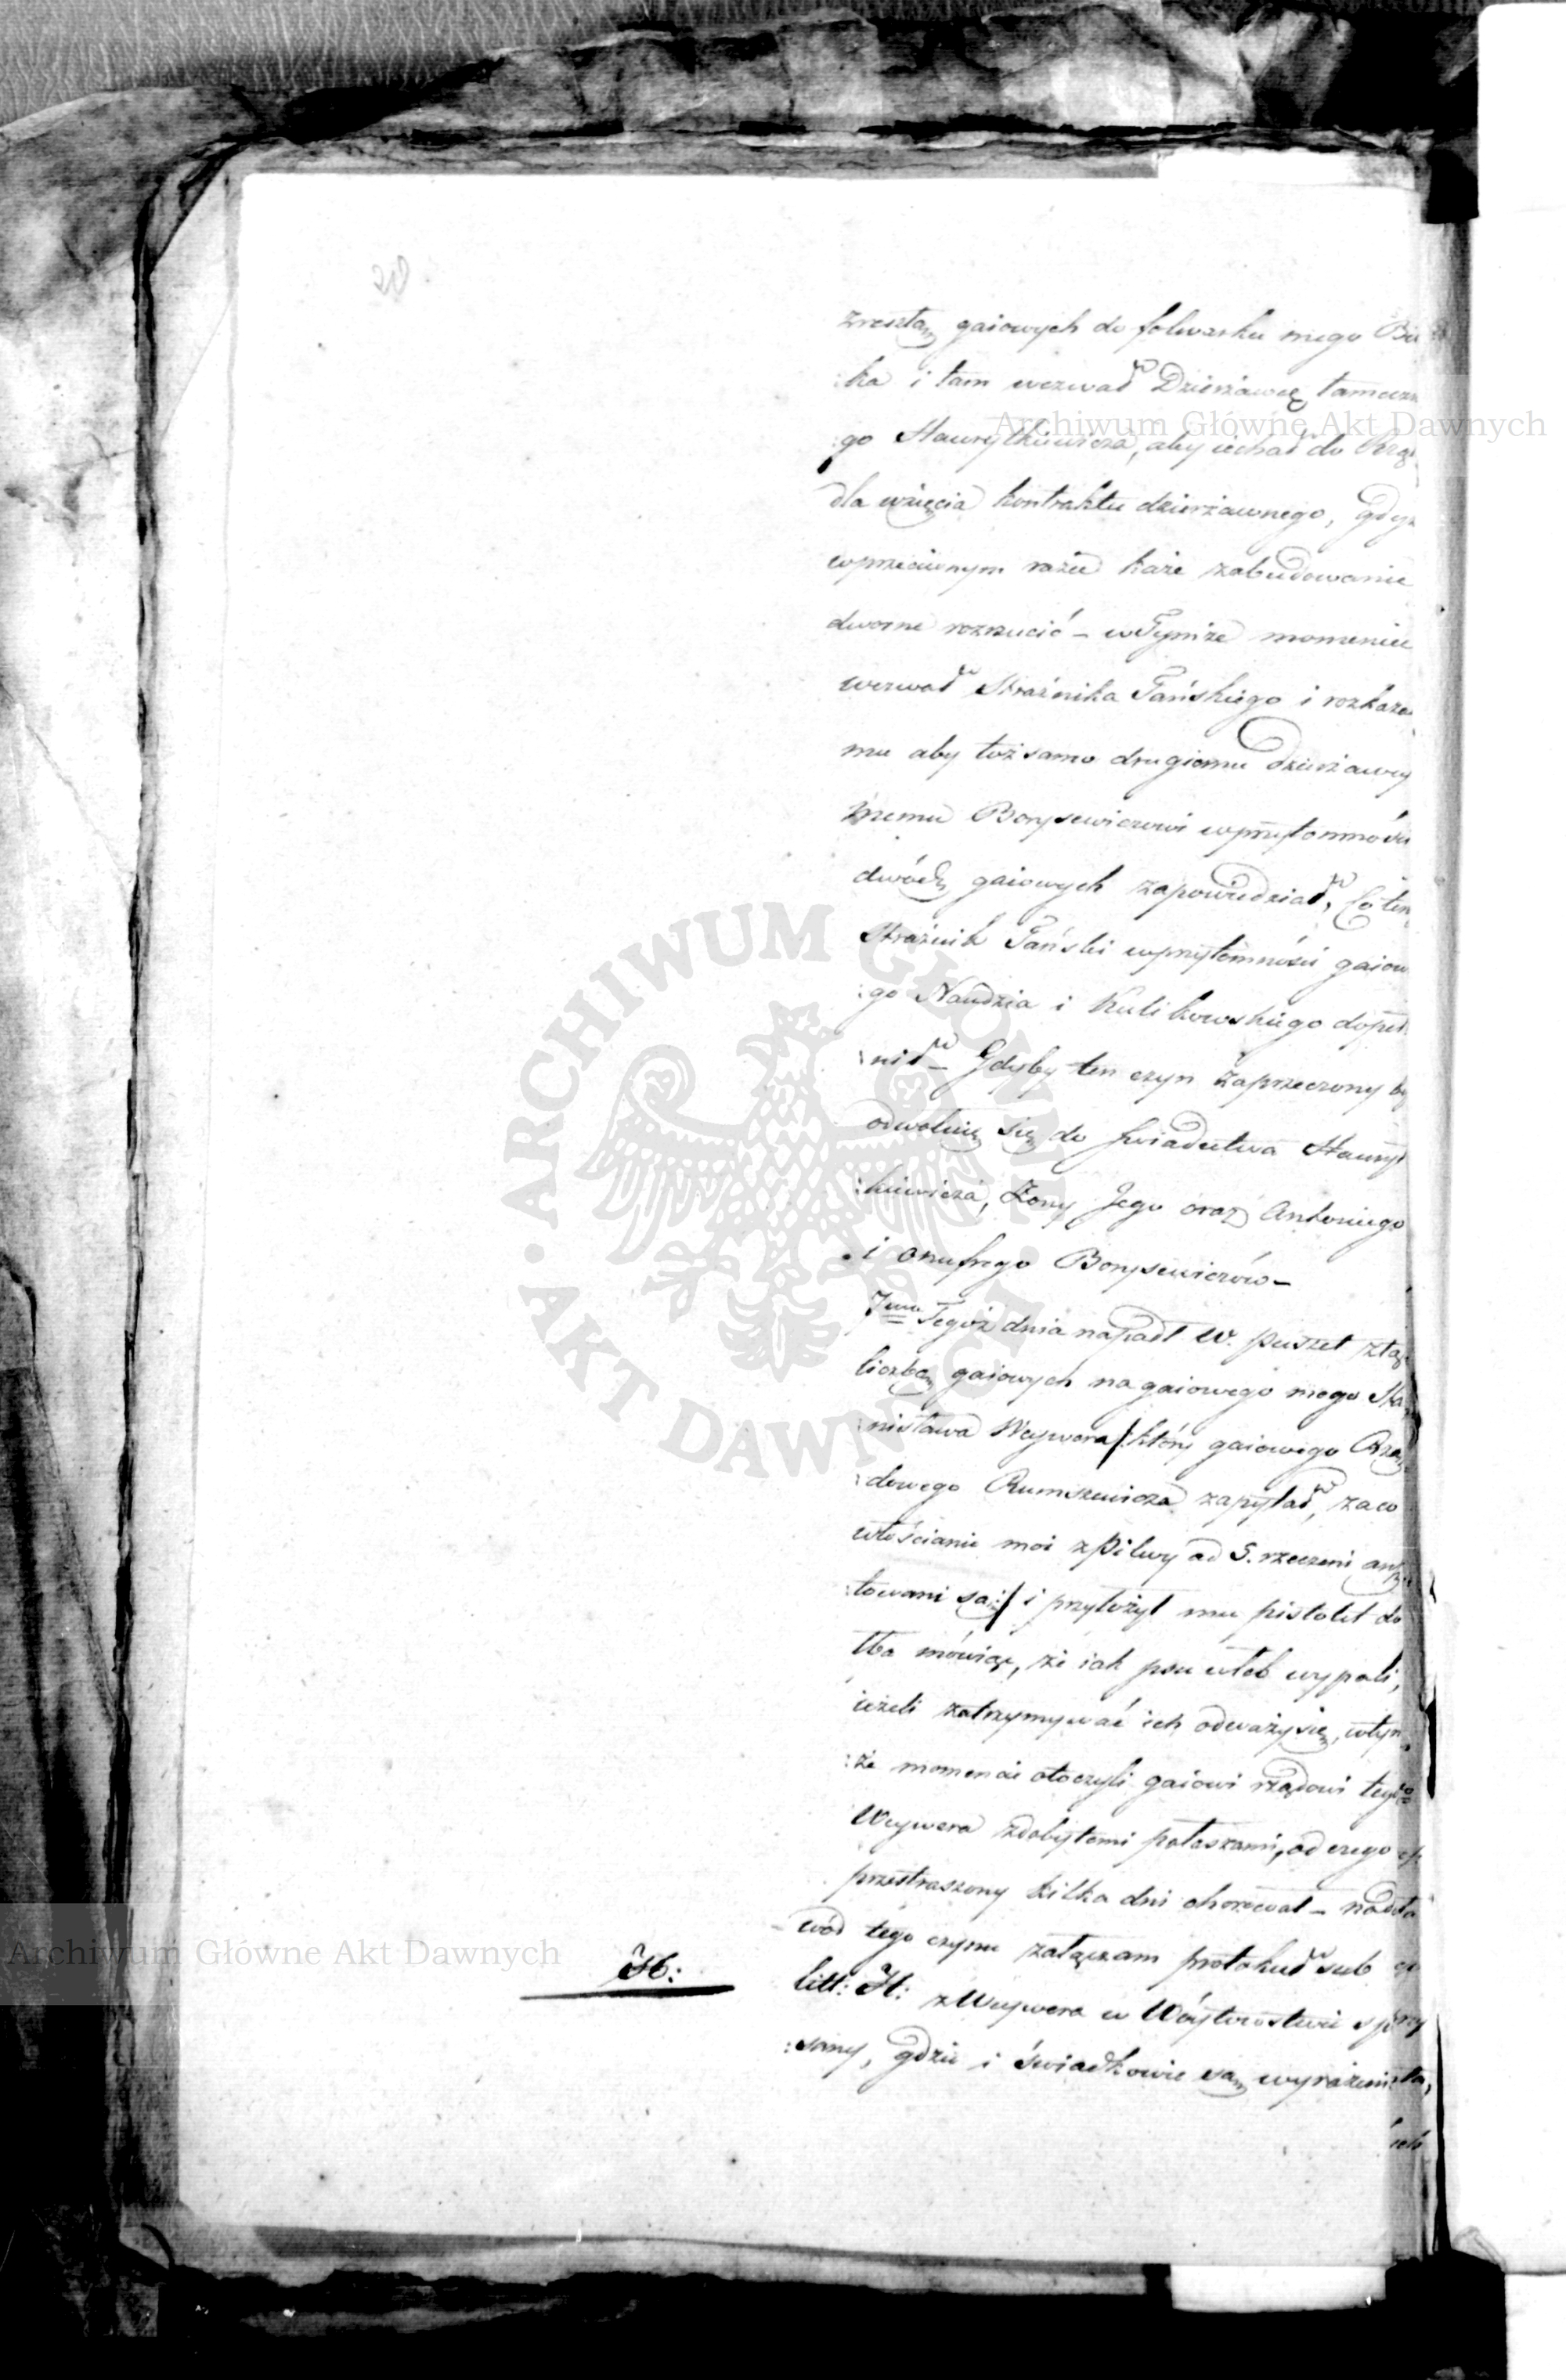 20
zresztą gaiowych do folwarku mego Bu
:ka i tam wezwał Dzierżawcę tameczn
:go Hawrytkiewicza, aby iechał do Krą
dla wzięcia kontraktu dzierżawnego, gdyż
wprzeciwnym razie każe zabudowanie
dworne rozrzucić – wTymże momencie
wezwał Strażnika Tańskiego i rozkaza
mu aby toż samo drugiemu dzierżawcy
memu Borysewiczowi wprzytomności
dwóch gaiowych zapowiedział, Co ten
Strażnik Tański wprzytomności gaiow
:go Naudzia i Kulikowskiego dopeł
:nił – Gdyby ten czyn zaprzeczony by
odwołuię się do świadectwa Hawryt
:kiewicza, Żony Jego oraz Antoniego
i Onufrego Borysewiczów –
7mo Tegoż dnia napadł W. Puszet ztą
liczbą gaiowych na gaiowego mego Sta
:nisława Weywera /: który gaiowego Rzą
:dowego Rumszewicza zapytał, za co
włościanie moi z Pilwy ad 5. rzeczeni aresz
:towani są :/ i przyłożył mu pistolet do
łba mówiąc, że iak psu włeb wypali,
ieżeli zatrzymywać ich odważy się, wtym
:że momencie otoczyli gaiowi rządowi tegoż
Weywera zdobytemi pałaszami, od czego
przestraszony kilka dni chorował – na do
wód tego czynu załączam protokuł sub
litt: H: z Weywera w Wóytowstwie spi
:sany, gdzie i świadkowie są wyrażeni
H:
Archiwum Główne Akt Dawnych
Archiwum Główne Akt Dawnych
ARCHIWUM GŁÓWNE · AKT DAWNYCH ·